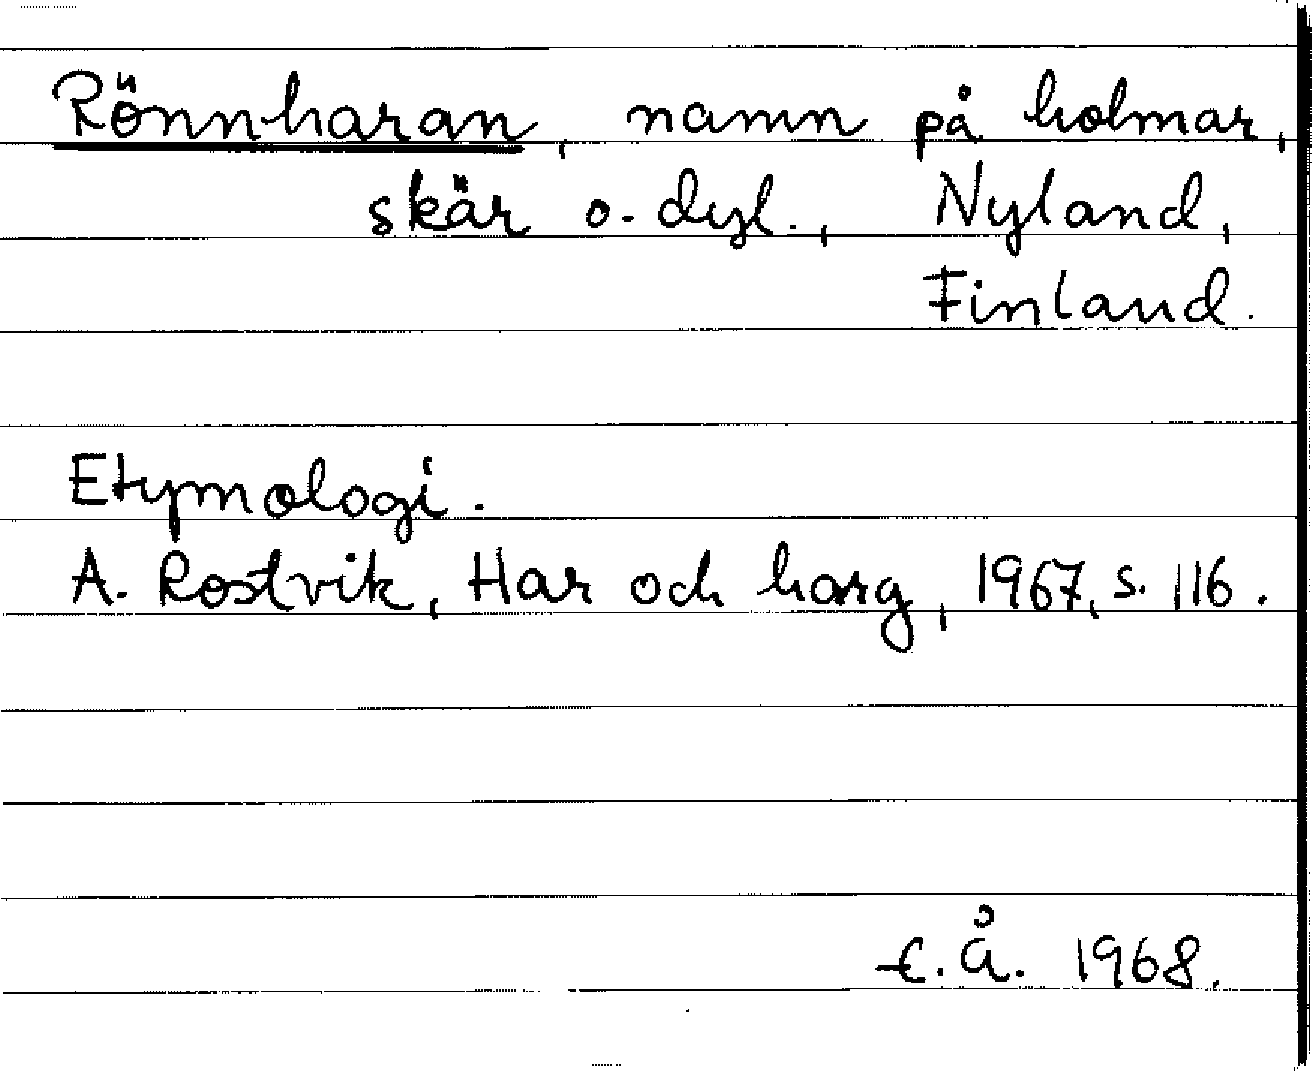 Rönnharan, namn på holmar,
skär o. dyl., Nyland,
Finland.
Etymologi.
A. Rostvik, Har och harg, 1967, s. 116.
E.Å. 1968.